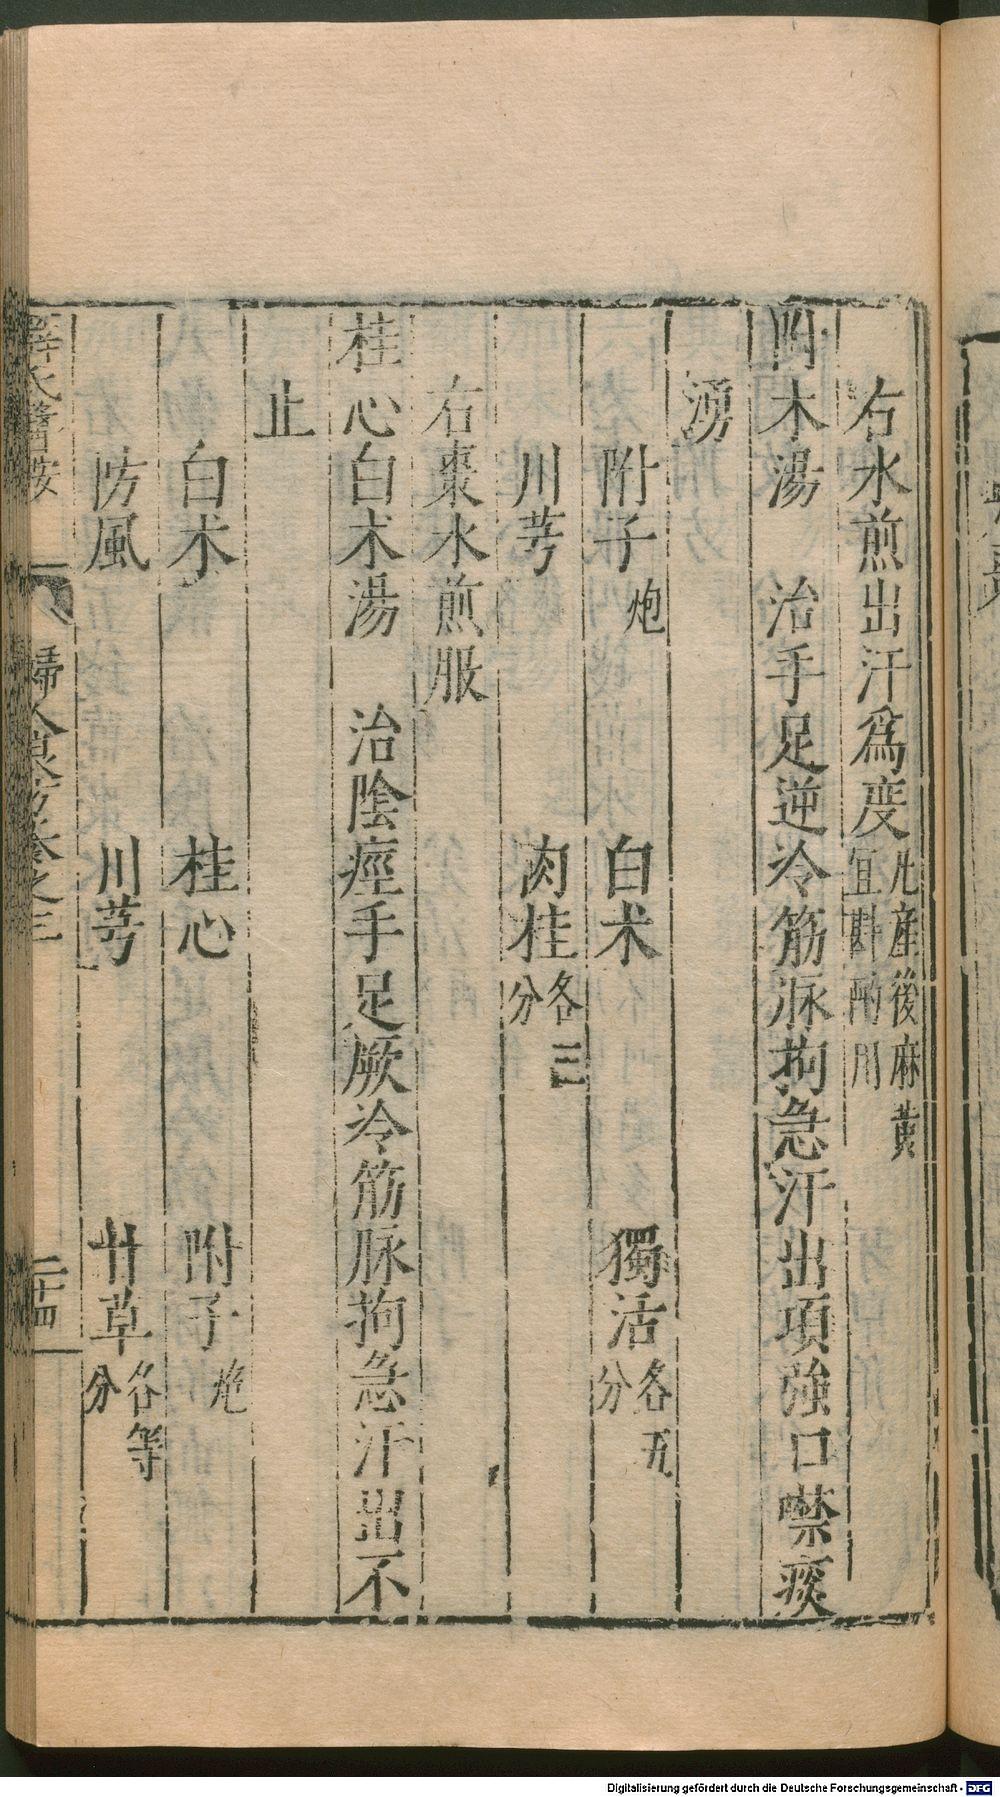 右水煎出汗爲度凡産後麻黄宜斟酌用
附木湯　治手足逆冷筋脉拘急汗出項強口禁痰
湧
附子炮　白术　獨活各五分
川芎　肉桂各三分
右棗水煎服
桂心白术湯　治陰痙手足厥冷筋脉拘急汗出不
止
白术　桂心　附子炮
防風　川芎　甘草各等分
薛氏醫按　婦人良方卷之三　二十四
Digitalisierung gefördert durch die Deutsche Forschungsgemeinschaft - DFG